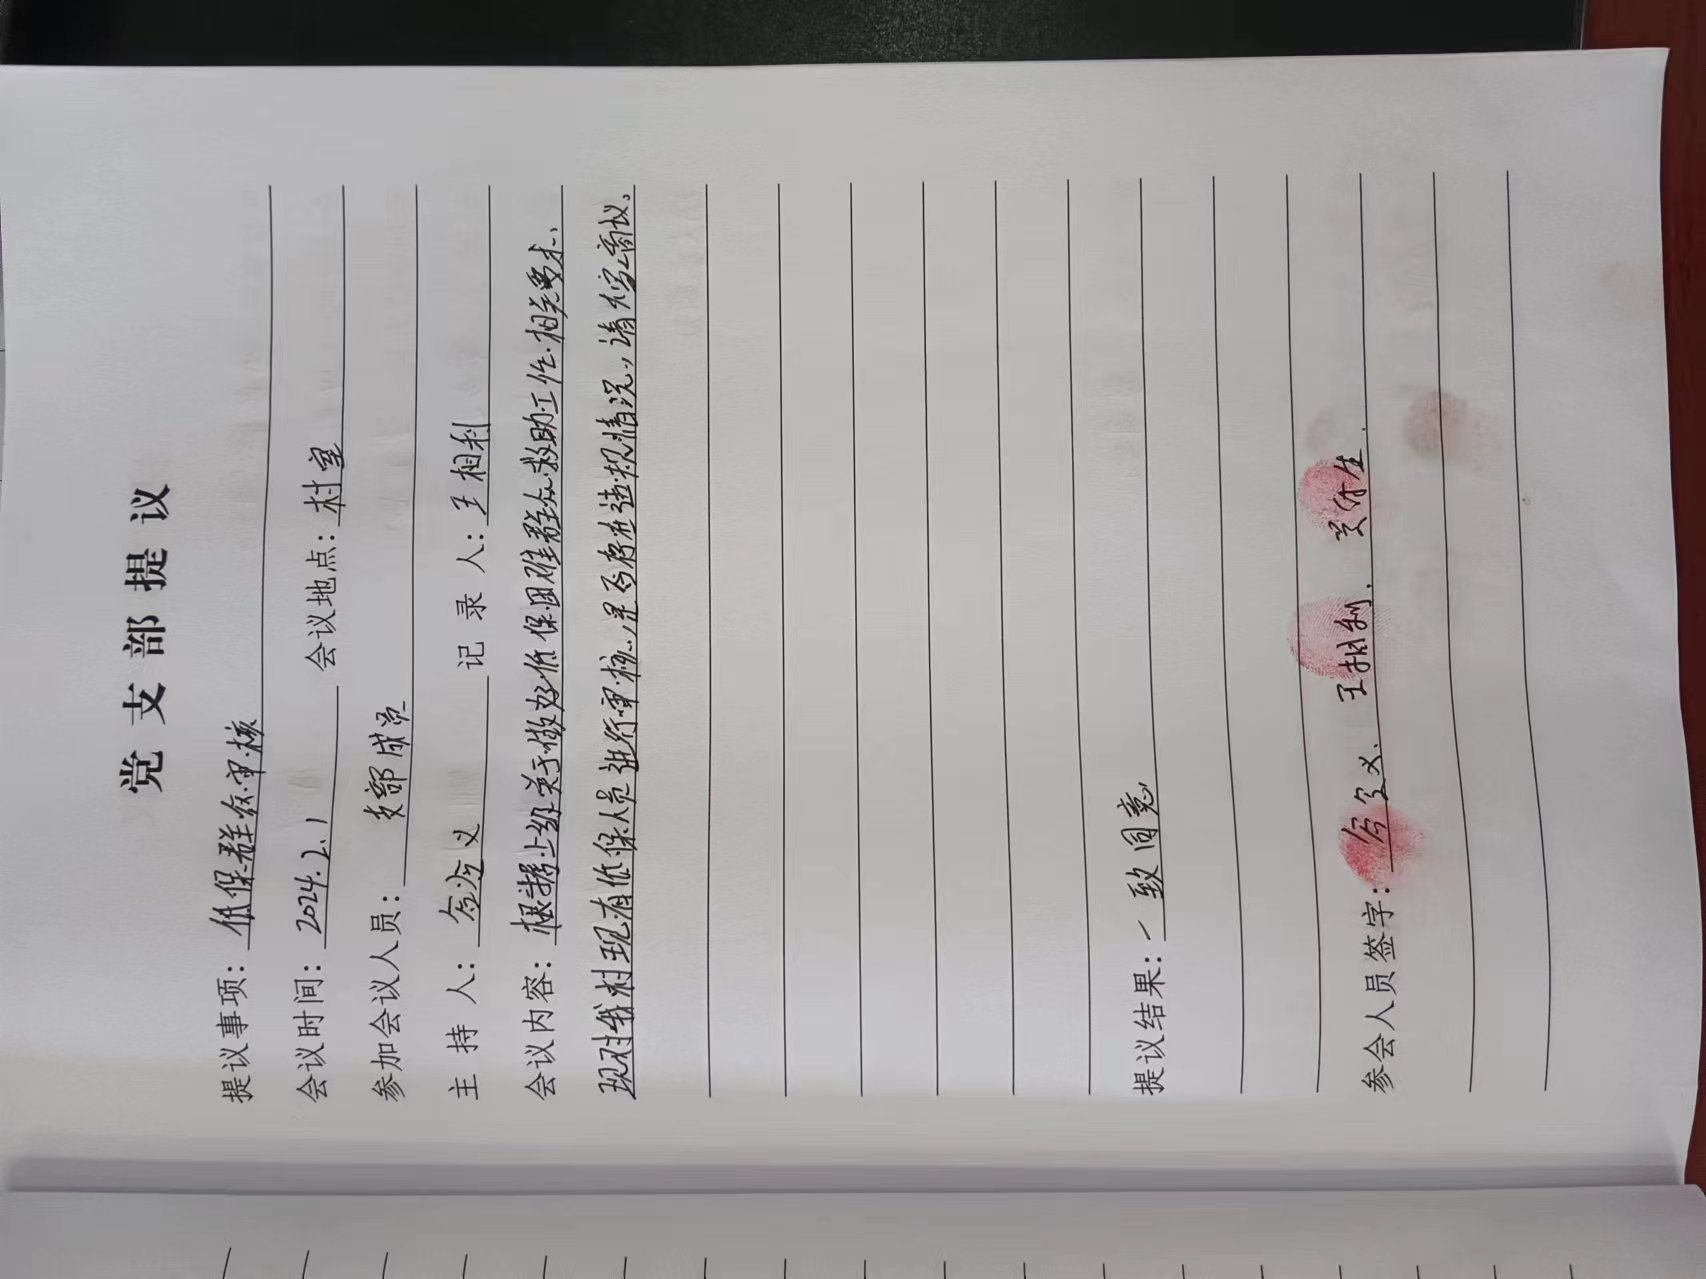 党支部提议
提议事项：低保群众审核
会议时间：2024.2.1 会议地点：村室
参加会议人员：支部成员
主持人：金义 记录人：王相利
会议内容：根据上级关于做好低保困难群众救助工作相关要求、
现对我村现有低保人员进行审核，是否存在违规情况，请大家商议。
提议结果：一致同意
参会人员签字：王相利、